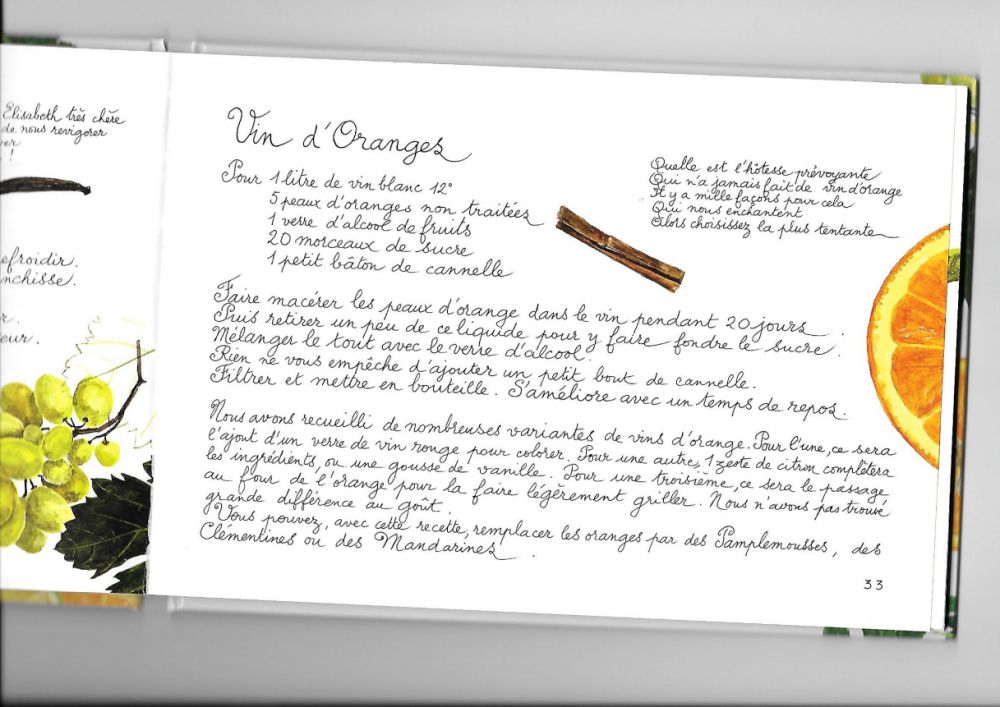 Elisabeth très chère
de nous revigorer
!
efroidir.
nchisse.
r.
eur.
Vin d'Oranges
Pour 1 litre de vin blanc 12°
5 peaux d'oranges non traitées
1 verre d'alcool de fruits
20 morceaux de sucre
1 petit bâton de cannelle
Quelle est l'hôtesse prévoyante
Qui n'a jamais fait de vin d'orange
Il y a mille façons pour cela
Qui nous enchantent
Alors choisissez la plus tentante
Faire macérer les peaux d'orange dans le vin pendant 20 jours.
Puis retirer un peu de ce liquide pour y faire fondre le sucre.
Mélanger le tout avec le verre d'alcool.
Rien ne vous empêche d'ajouter un petit bout de cannelle.
Filtrer et mettre en bouteille. S'améliore avec un temps de repos.
Nous avons recueilli de nombreuses variantes de vins d'orange. Pour l'une, ce sera
l'ajout d'un verre de vin rouge pour colorer. Pour une autre, 1 zeste de citron complètera
les ingrédients, ou une gousse de vanille. Pour une troisième, ce sera le passage
au four de l'orange pour la faire légèrement griller. Nous n'avons pas trouvé
grande différence au goût.
Vous pouvez, avec cette recette, remplacer les oranges par des Pamplemousses, des
Clémentines ou des Mandarines.
33